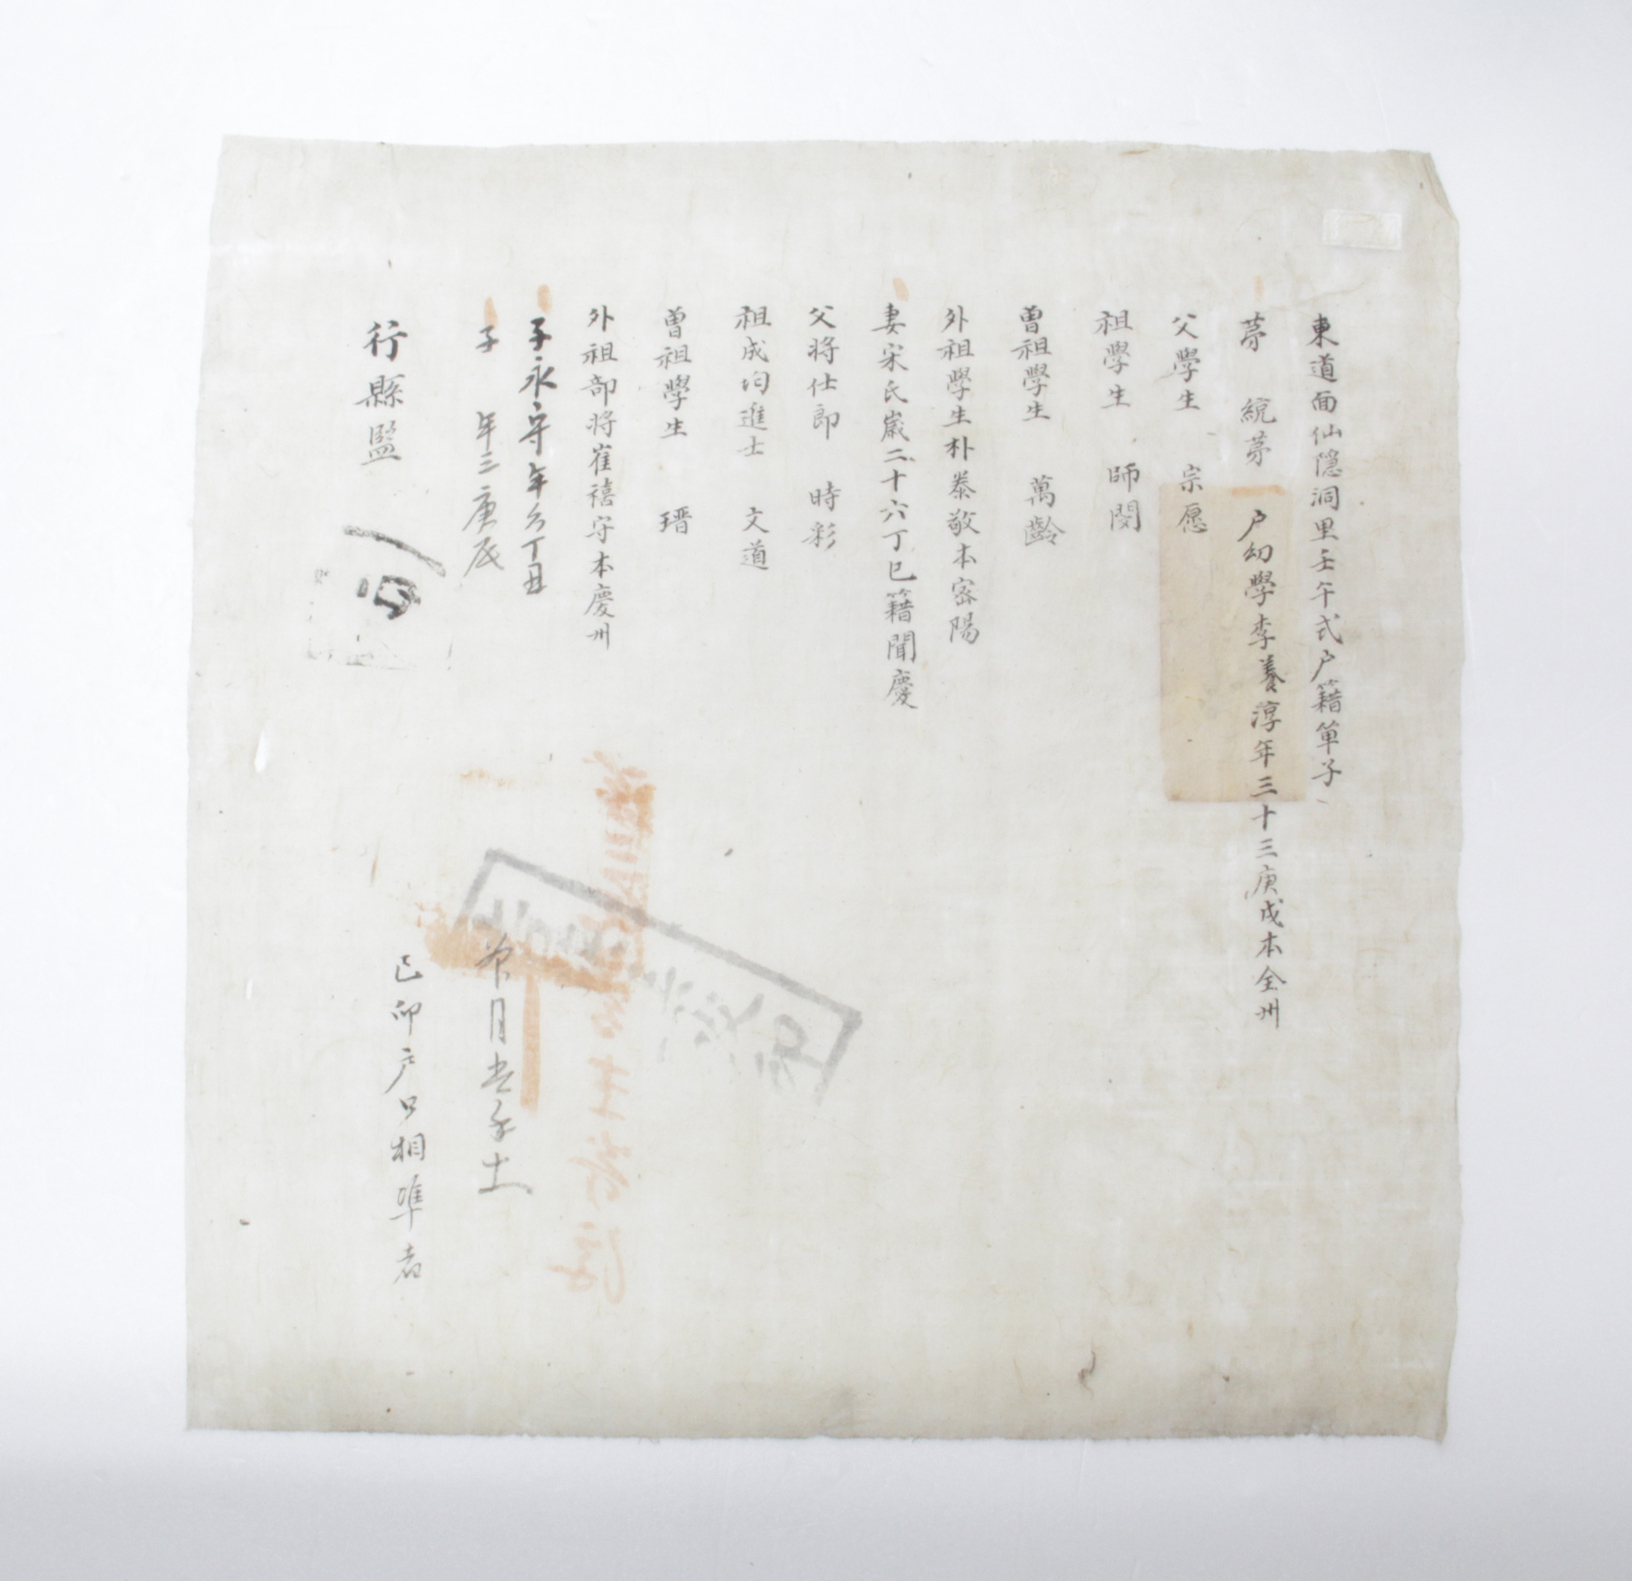 東道面仙隱洞里壬午式户籍單子
苐 統苐 户幼學李養淳年三十三庚戌本全州
父學生 宗愿
祖學生 師閔
曾祖學生 萬齡
外祖學生朴泰敬本密陽
妻宋氏歲二十六丁巳籍聞慶
父將仕郎 時彩
祖成均進士 文道
曾祖學生 瑨
外祖部將崔禧守本慶州
子永守年六丁丑
子 年三庚辰
行縣監
己卯户口相準者